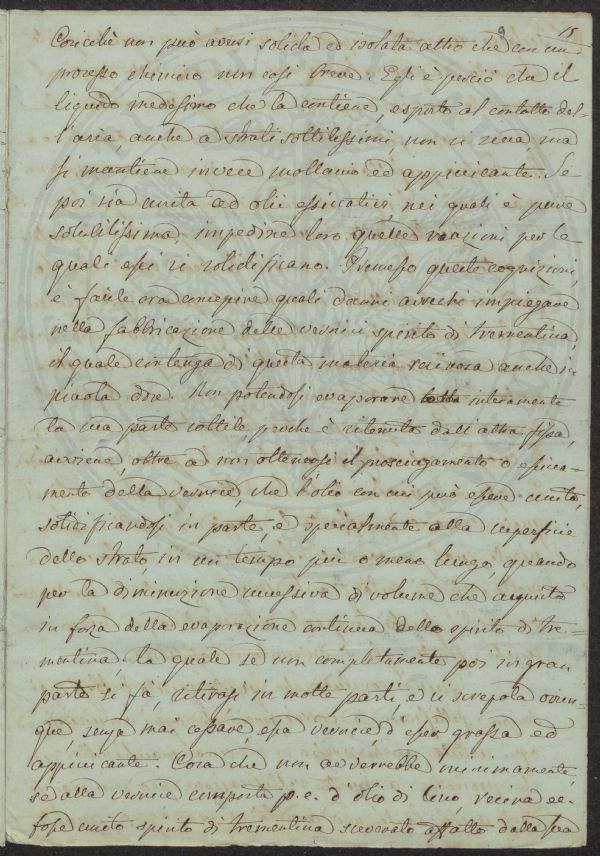 9 15
Cosicchè non può aversi solida ed isolata altro che con un
processo chimico non così breve. Egli è perciò che il
liquido medesimo che la contiene, esposto al contatto del-
l'aria, anche a strati sottilissimi, non si secca ma
si mantiene invece molliccio ed appiccicante. Se
poi sia unita ad olii essiccativi nei quali è pure
solubilissima, impedisce loro quelle reazioni per le
quali essi si solidificano. Premesso queste cognizioni,
è facile ora concepire quali danni arrechi impiegare
nella fabbricazione delle vernici spirito di trementina,
il quale contenga di questa materia resinosa anche in
piccola dose. Non potendosi evaporare interamente
la sua parte volatile, perchè è ritenuta dall'altra fissa,
avviene, oltre a non ottenersi il prosciugamento o essicca-
mento della vernice, che l'olio con cui può essere unita,
solidificandosi in parte, e specialmente alla superficie
dello strato, in un tempo più o meno lungo, quando
per la diminuzione successiva di volume che acquista
in forza della evaporazione continua dello spirito di tre-
mentina, la quale se non completamente poi in gran
parte si fà, ritirasi in molte parti, e si screpola ovun-
que, senza mai cessare, essa vernice, d'esser grassa ed
appiccicante. Cosa che non avverrebbe minimamente,
se alla vernice composta p. e. d'olio di lino, resina ec.
fosse unito spirito di trementina sceverato affatto dalla sua